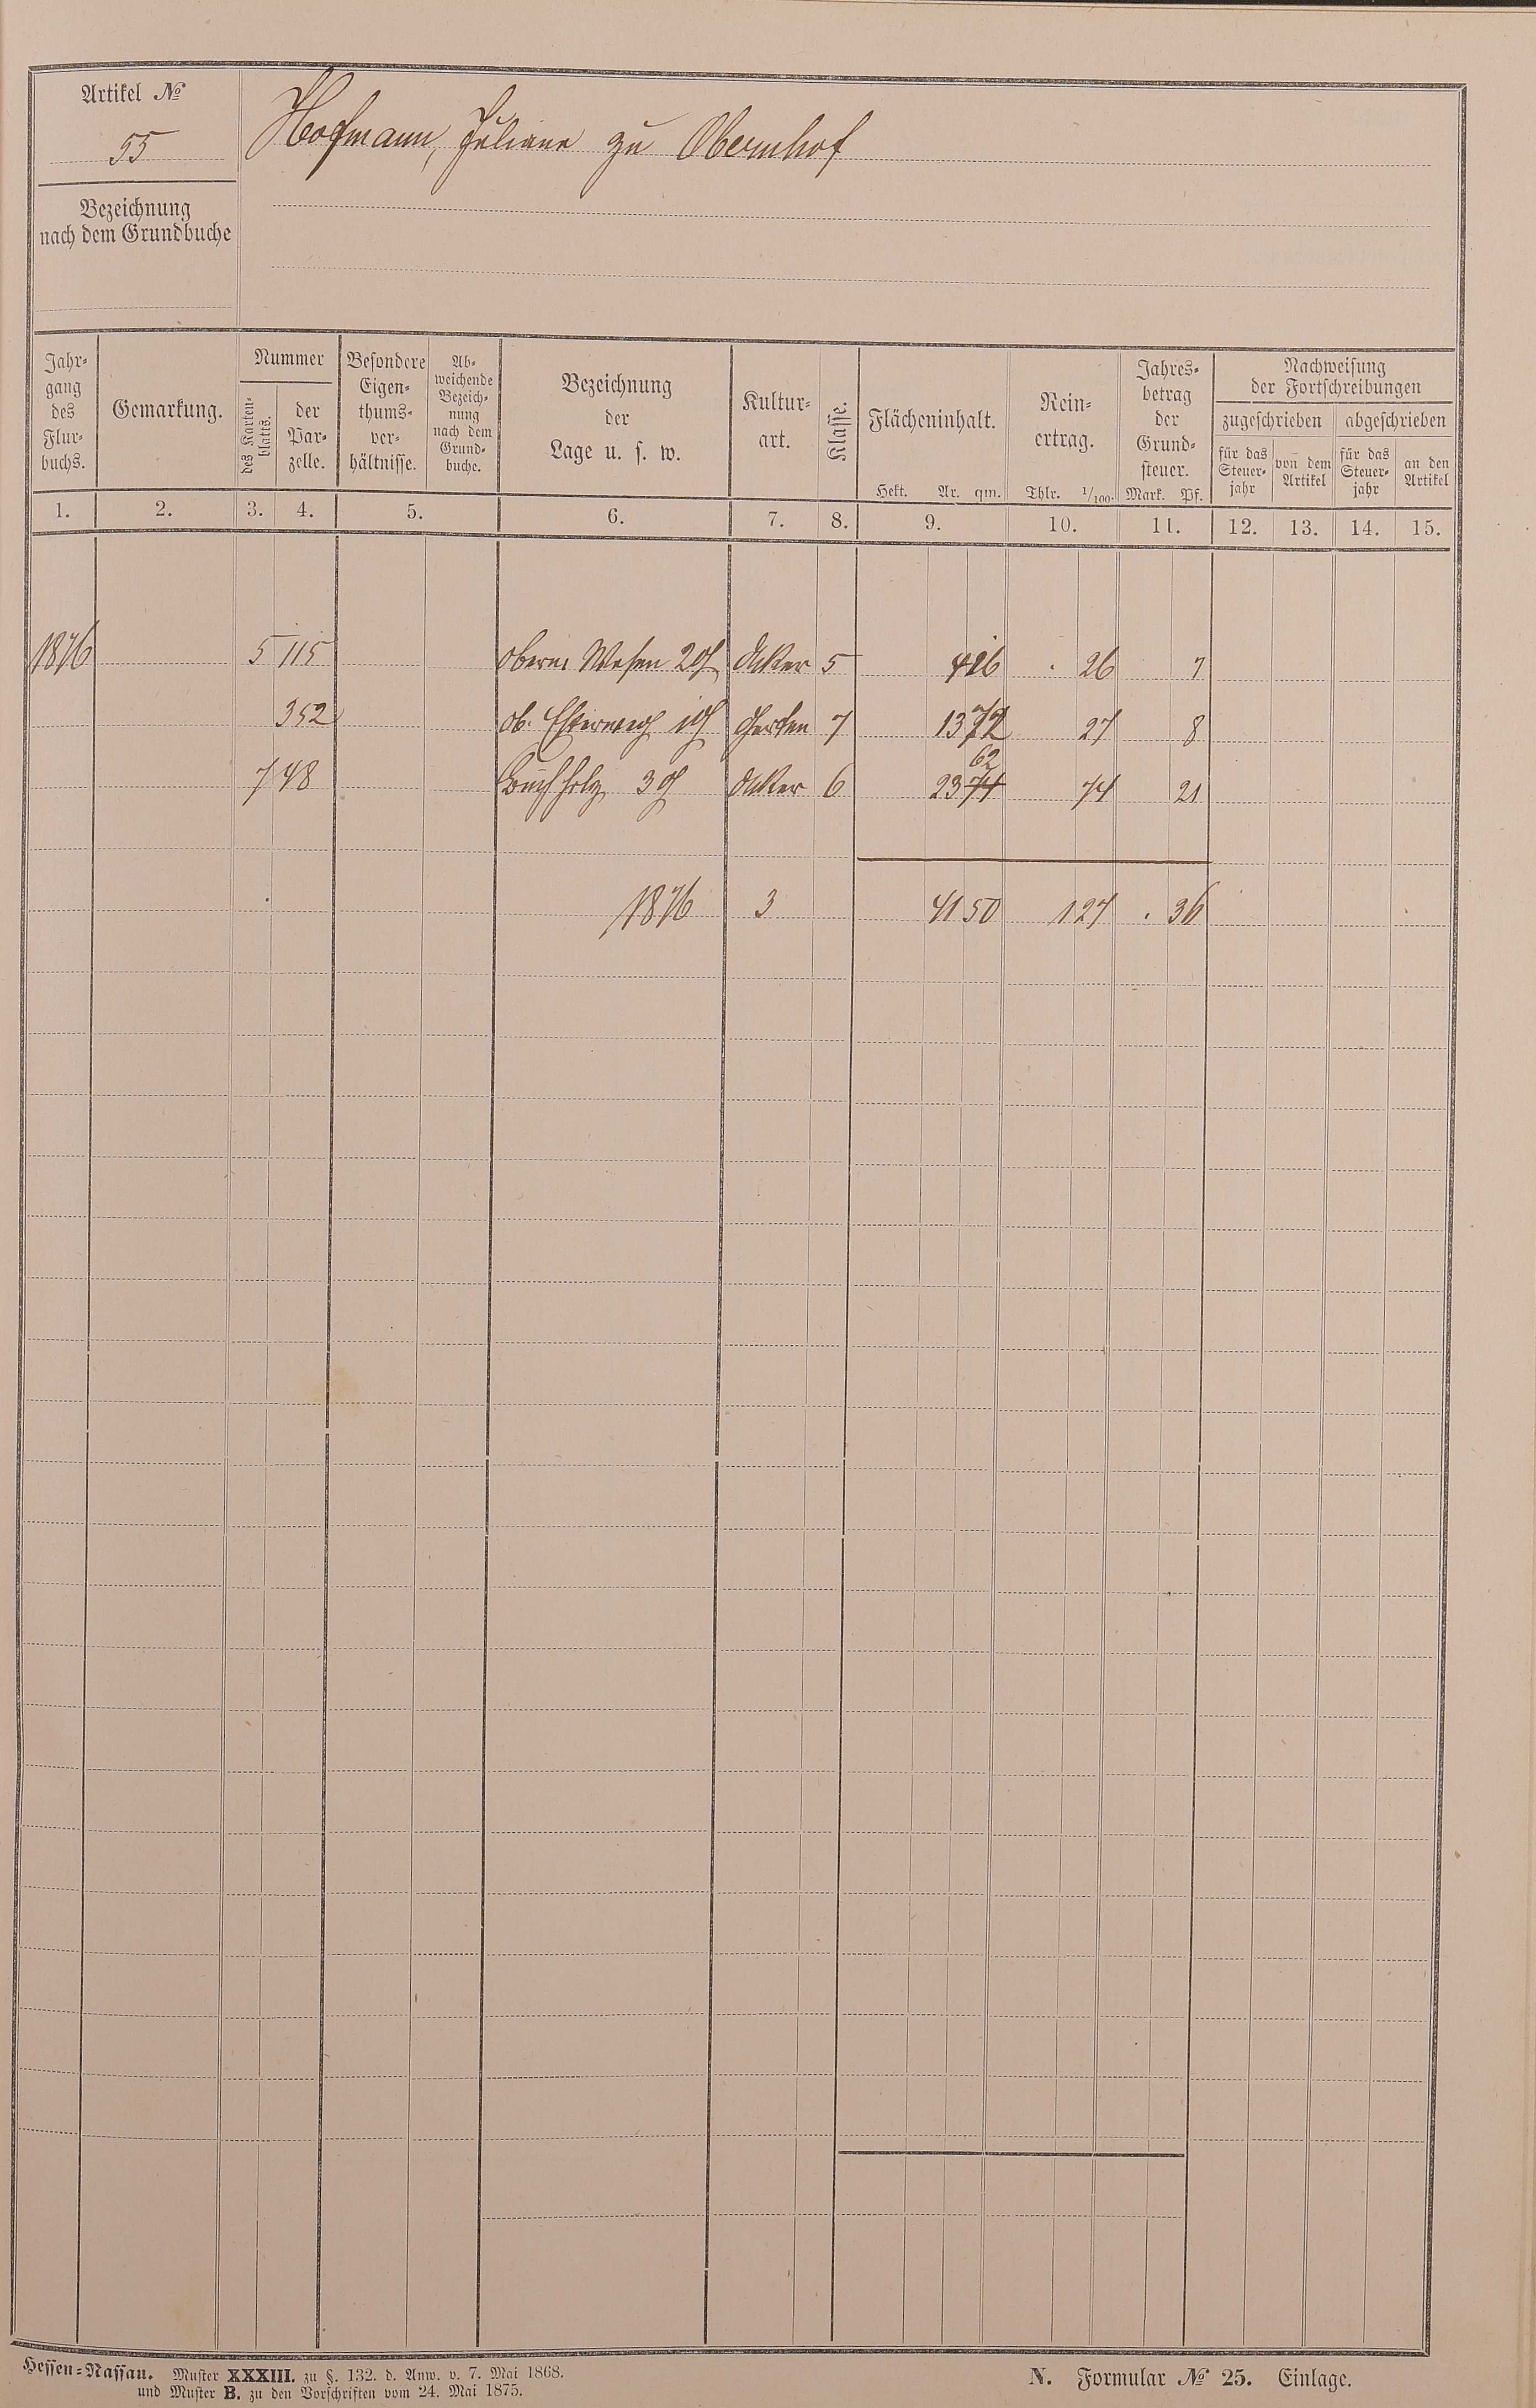 Artikel №
55
Hofmann, Juliane zu Obernhof
Bezeichnung
nach dem Grundbuche
Jahr-
gang
des
Flur-
buchs.
Gemarkung.
Nummer
des Karten-
blatts.
der
Par-
zelle.
Besondere
Eigen-
thums-
ver-
hältnisse.
Ab-
weichende
Bezeich-
nung
nach dem
Grund-
buche.
Bezeichnung
der
Lage u. s. w.
Kultur-
art.
Klasse.
Flächeninhalt.
Hekt. Ar. qm.
Rein-
ertrag.
Thlr. 1/100.
Jahres-
betrag
der
Grund-
steuer.
Mark. Pf.
Nachweisung
der Fortschreibungen
zugeschrieben abgeschrieben
für das
Steuer-
jahr
von dem
Artikel
für das
Steuer-
jahr
an den
Artikel
1. 2. 3. 4. 5. 6. 7. 8. 9. 10. 11. 12. 13. 14. 15.
1876 5 115 Acker 5 4 16 . 26 7
352 7 13 72 27 8
62
7 48 Buchholz 3 Acker 6 23 74 74 21
1876 3 41 50 1 27 . 36
Hessen-Nassau. Muster XXXIII. zu §. 132. d. Anw. v. 7. Mai 1868.
und Muster B. zu den Vorschriften vom 24. Mai 1875.
N. Formular № 25. Einlage.